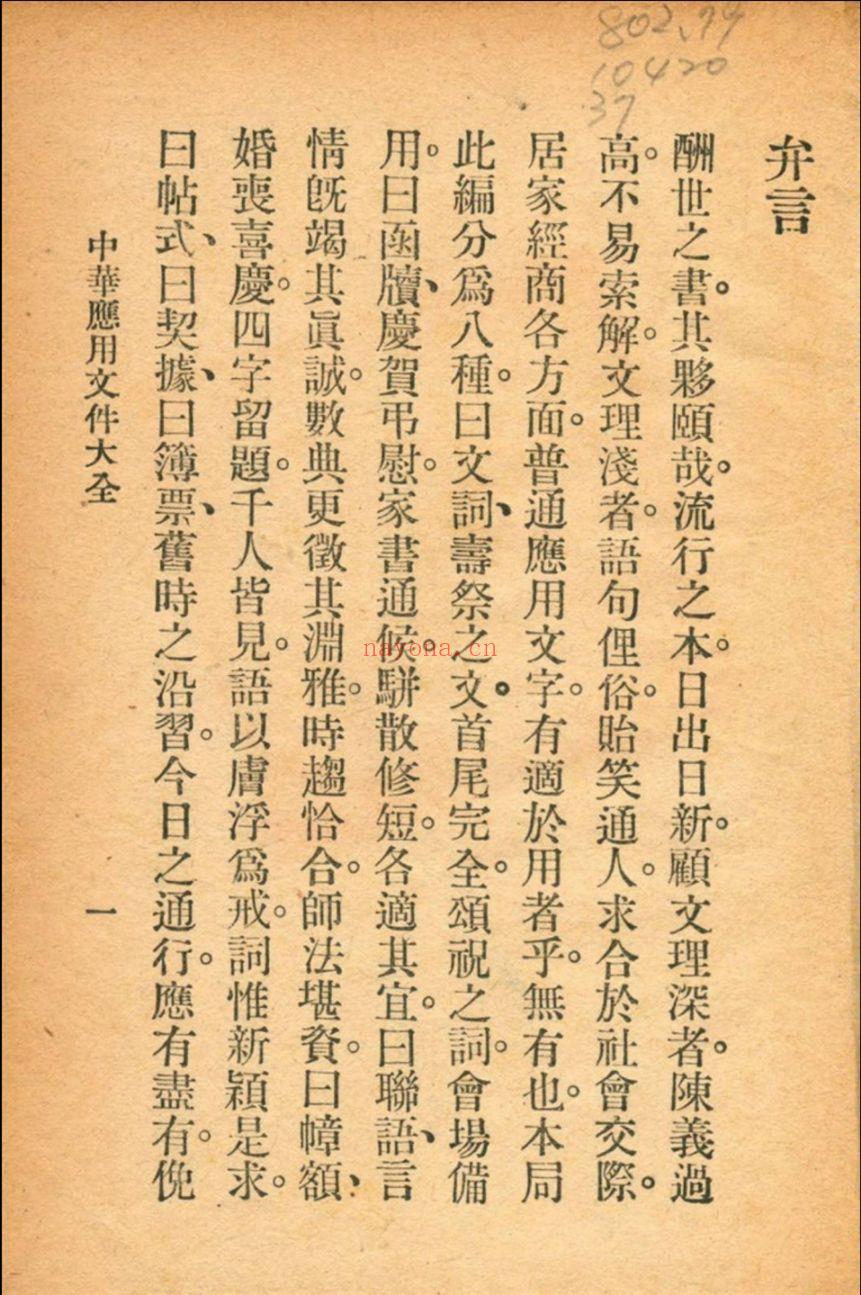 802.79
10420
37
弁言
酬世之書。其夥頤哉。流行之本。日出日新。顧文理深者。陳義過
高。不易索解。文理淺者。語句俚俗。貽笑通人。求合於社會交際。
居家經商各方面。普通應用文字。有適於用者乎。無有也。本局
此編分爲八種。曰文詞、壽祭之文。首尾完全。頌祝之詞。會場備
用。曰函牘、慶賀弔慰。家書通候。駢散修短。各適其宜。曰聯語、言
情旣竭其眞誠。數典更徵其淵雅。時趨恰合。師法堪資。曰幛額、
婚喪喜慶。四字留題。千人皆見。語以膚浮爲戒。詞惟新穎是求。
曰帖式、曰契據、曰簿票、舊時之沿習。今日之通行。應有盡有。俛
中華應用文件大全
一
nayona.cn